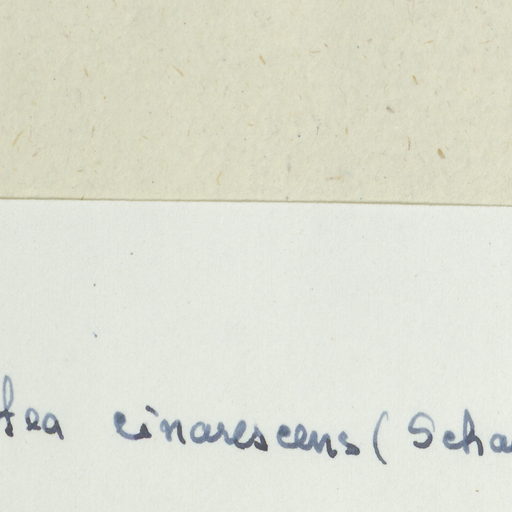 fea cinarescens (Scha